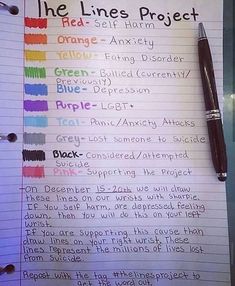 The Lines Project
Red- Self Harm
Orange- Anxiety
Yellow- Eating Disorder
Green- Bullied (currently/
previously)
Blue- Depression
Purple- LGBT+
Teal- Panic/Anxiety Attacks
Grey- Lost someone to
Suicide
Black- Considered/attempted
Suicide
Pink- Supporting the Project
-On December 15-20th we will draw
these lines on our wrists with sharpie.
If you self harm, are depressed, feeling
down, then you will do this on your left
wrist.
If you are supporting this cause than
draw lines on your right wrist. These
lines represent the millions of lives lost
from suicide.
Repost with the tag #thelinesproject to
get the word out.